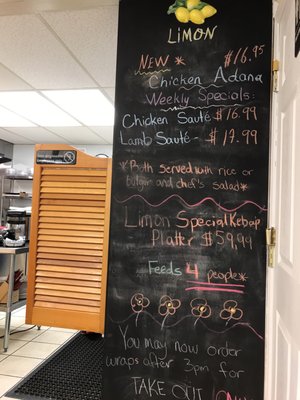 LIMON
NEW * $16.95
Chicken Adana
Weekly Specials:
Chicken Sauté - $16.99
Lamb Sauté - $17.99
*Both served with rice or
bulgur and chef's salad*
Limon Special Kebap
Platter $59.99
Feeds 4 people*
You may now order
wraps after 3pm for
TAKE OUT